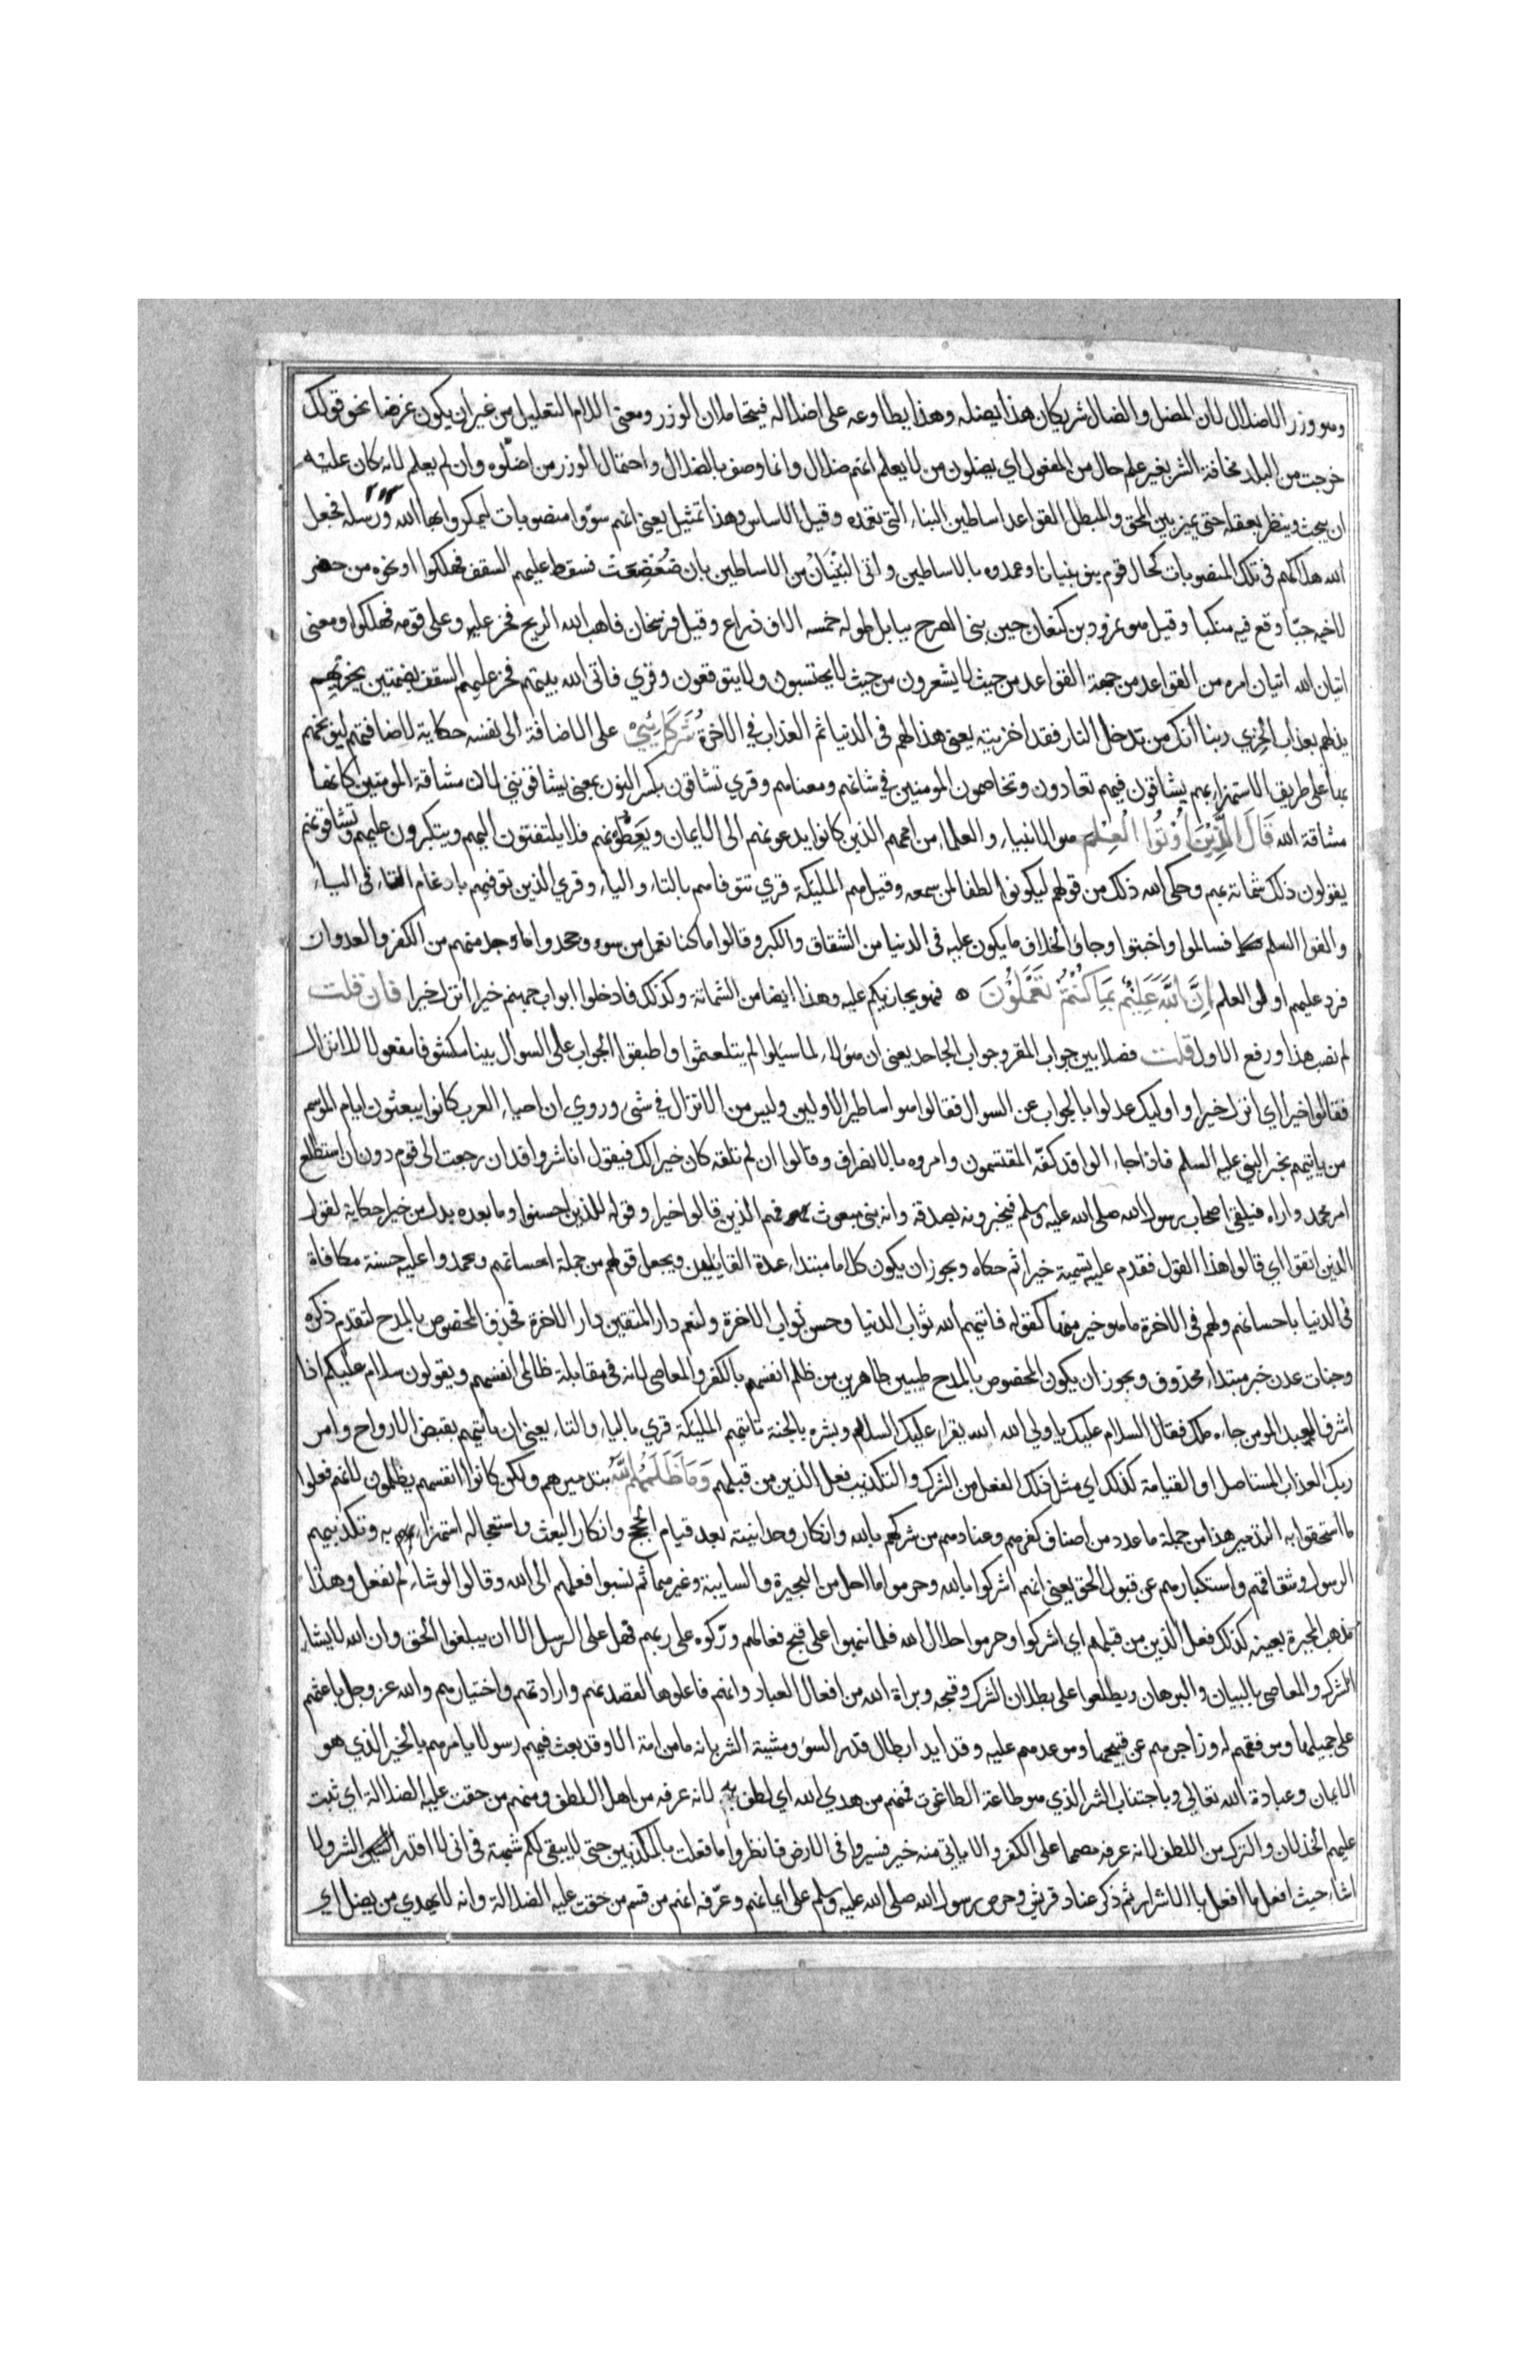 وهو وزر الاضلال لان المضل والضال شريكان هذا يضله وهذا يطاوعه على اضلاله فيتحاملان الوزر ومعنى اللام التعليل من غير ان يكون غرضا نحو قولك
خرجت من البلد مخافة الشر بغير علم حال من المفعول اي يضلون من لا يعلم انهم ضلال وانما وصف بالضلال واحتمال الوزر من اضلّوه وان لم يعلم لانه كان عليه
ان يبحث وينظر بعقله حتى يميز بين المحق والمبطل القواعد اساطين البناء التي تعمده وقيل الاساس وهذا تمثيل يعني انهم سوّوا منصوبات ليمكروا بها الله ورسله فجعل
الله هلاكهم في تلك المنصوبات كحال قوم بنوا بنيانا وعمدوه بالاساطين واتى البُنْيَانُ من الاساطين بان ضُعْضِعَتْ فسقط عليهم السقف فهلكوا ونحوه من حفر
لاخيه جبّا وقع فيه منكبا وقيل هو نمرود بن كنعان حين بنى الصرح ببابل طوله خمسه الاف ذراع وقيل فرسخان فاهب الله الريح فخر عليه وعلى قومه فهلكوا ومعنى
اتيان الله اتيان امره من القواعد من جهة القواعد من حيث لا يشعرون من حيث لا يحتسبون ولا يتوقعون وقري فاتى الله بيتهم فخر عليهم السقف بضمتين يخزيهم
يذلهم بعذاب الخزي ربنا انك من تدخل النار فقد اخزيته يعني هذا لهم في الدنيا ثم العذاب في الاخرة شُرَكَائِيَ على الاضافة الى نفسه حكاية لاضافتهم ليوبخهم
بها على طريق الاستهزاء بهم يشاقون فيهم تعادون وتخاصمون المومنين في شانهم ومعناهم وقري تشاقون بكسر النون بمعنى يشاقونني لان مشاقة المومنين كانها
مشاقة الله قَالَ الَّذِيْنَ أُوْتُوا الْعِلْمَ هم الانبياء والعلماء من اممهم الذين كانوا يدعونهم الى الايمان ويَعِظُونهم فلا يلتفتون اليهم ويتكبرون عليهم وتشاقونهم
يقولون ذلك شماتة بهم وحكى الله ذلك من قولهم ليكون لطفا لمن سمعه وقيل هم المليكة قري تتوفاهم بالتاء والياء وقري الذين توفيهم بادغام التاء في التاء
والقوا السلم فسالموا واخبتوا وجاؤا بخلاف ما يكون عليه في الدنيا من الشقاق والكبر وقالوا ما كنا نعمل من سوء وجحدوا ما وجد منهم من الكفر والعدوان
فرد عليهم اولوا العلم اِنَّ اللّٰهَ عَلِيْمٌ بِمَا كُنْتُمْ تَعْمَلُوْنَ ه فهو يجازيكم عليه وهذا ايضا من الشماتة وكذلك فادخلوا ابواب جهنم خيرا انزل خيرا فان قلت
لم نصب هذا ورفع الاول قلت فصلا بين جواب المقر وجواب الجاحد يعني ان هولاء لما سيلوا لم يتلعثموا واطبقوا الجواب على السوال بينا مكشوفا مفعولا للانزال
فقالوا خيرا اي انزل خيرا واوليك عدلوا بالجواب عن السوال فقالوا هو اساطير الاولين وليس من الانزال في شي وروي ان احياء العرب كانوا يبعثون ايام الموسم
من ياتيهم بخبر النبي عليه السلم فاذا جاء الوافد كفّه المقتسمون وامروه بالانصراف وقالوا ان لم تلقه كان خيرا لك فيقول انا شر وافد ان رجعت الى قوم دون ان استطلع
امر محمد واراه فيلقى اصحاب رسول الله صلى الله عليه وسلم فيخبرونه بصدقه وانه نبي مبعوث فهم الذين قالوا خيرا وقوله للذين احسنوا وما بعده بدل من خيرا حكاية لقول
الذين اتقوا اي قالوا هذا القول فقدم عليه تسمية خيرا ثم حكاه ويجوز ان يكون كلاما مبتداء عدة للقايلين ويجعل قولهم من جملة احسانهم ويحمدوا عليه حسنة مكافاة
في الدنيا باحسانهم ولهم في الاخرة ما هو خير منها كقوله فاتيهم الله ثواب الدنيا وحسن ثواب الاخرة ولنعم دار المتقين دار الاخرة فحذف المخصوص بالمدح لتقدم ذكره
وجنات عدن خبر مبتداء محذوف ويجوز ان يكون المخصوص بالمدح طيبين طاهرين من ظلم انفسهم بالكفر والمعاصي لانه في مقابلة ظالمي انفسهم ويقولون سلام عليكم اذا
اشرف العبد المومن جاءه ملك فقال السلام عليك يا ولي الله الله يقراء عليك السلام وبشره بالجنة تاتيهم المليكة قري بالياء والتاء يعني ان ياتيهم بقبض الارواح وامر
ربك العذاب المستاصل او القيامة كذلك اي مثل ذلك الفعل من الشرك والتكذيب فعل الذين من قبلهم وَمَا ظَلَمَهُمُ اللّٰهُ بتدميرهم ولكن كانوا انفسهم يظلمون لانهم فعلوا
ما استحقوا به التدمير هذا من جملة ما عدد من اصناف كفرهم وعنادهم من شركهم بالله وانكار وحدانيته بعد قيام الحجج وانكار البعث واستعجاله استهزاء به وتكذيبهم
الرسول وشقاقهم واستكبارهم عن قبول الحق يعني انهم اشركوا بالله وحرموا ما احل من البحيرة والسايبة وغيرهما ثم نسبوا فعلهم الى الله وقالوا لو شاء لم نفعل وهذا
مذهب المجبرة بعينه كذلك فعل الذين من قبلهم اي اشركوا وحرموا حلال الله فلما نبهوا على قبح فعالهم ورّكوه على ربهم فهل على الرسل الا ان يبلغوا الحق وان الله لا يشاء
الشرك والمعاصي بالبيان والبرهان ويطلعوا على بطلان الشرك وقبحه وبراة الله من افعال العباد وانهم فاعلوها بقصدهم وارادتهم واختيارهم والله عز وجل باعثهم
على جميلها وموفقهم له وزاجرهم عن قبيحها وموعدهم عليه وقد ايد ابطال قدر السوء ومشية الشر بانه ما من امة الا وقد بعث فيهم رسولا يامرهم بالخير الذي هو
الايمان وعبادة الله تعالى وباجتناب الشر الذي هو طاعة الطاغوت فمنهم من هدي الله اي لطف به لانه عرفه من اهل اللطف ومنهم من حقت عليه الضلالة اي ثبت
عليهم الخذلان والترك من اللطف لانه عرفه مصمما على الكفر والا ياتي منه خير فسيروا في الارض فانظروا ما فعلت بالمكذبين حتى لا يبقى لكم شبهة في اني لا اقدر الشر ولا
اشاء حيث افعل ما افعل بالاشرار ثم ذكر عناد قريش وحرص رسول الله صلى الله عليه وسلم على ايمانهم وعرّفه انهم من قسم من حقت عليه الضلالة وانه لا يهدي من يضل اي